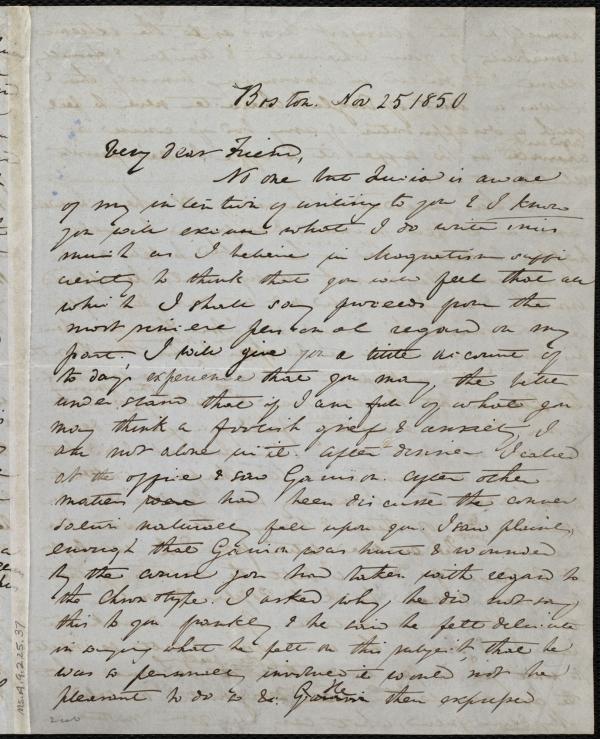 Boston. Nov 25 1850
Very dear Friend,
No one but Lucia is aware
of my intention of writing to you & I know
you will excuse what I do write inas
much as I believe in Magnetism suffi
ciently to think that you will feel that all
which I shall say proceeds from the
most sincere personal regard on my
part. I will give you a little account of
to day's experience that you may, the better
understand that if I am full of what you
may think a foolish grief & anxiety, I
am not alone in it. After dinner I called
at the office & saw Garrison. After other
matters had been discussed the conver
sation naturally fell upon you. I saw plainly
enough that Garrison was hurt & wounded
by the course you had taken with regard to
the Chronotype. I asked why, he did not say
this to you frankly & he said he felt delicate
in saying what he felt on this subject, that he
was so personally involved it would not be
pleasant to do so &c. He then expressed
Ms.A.9.2.25.37